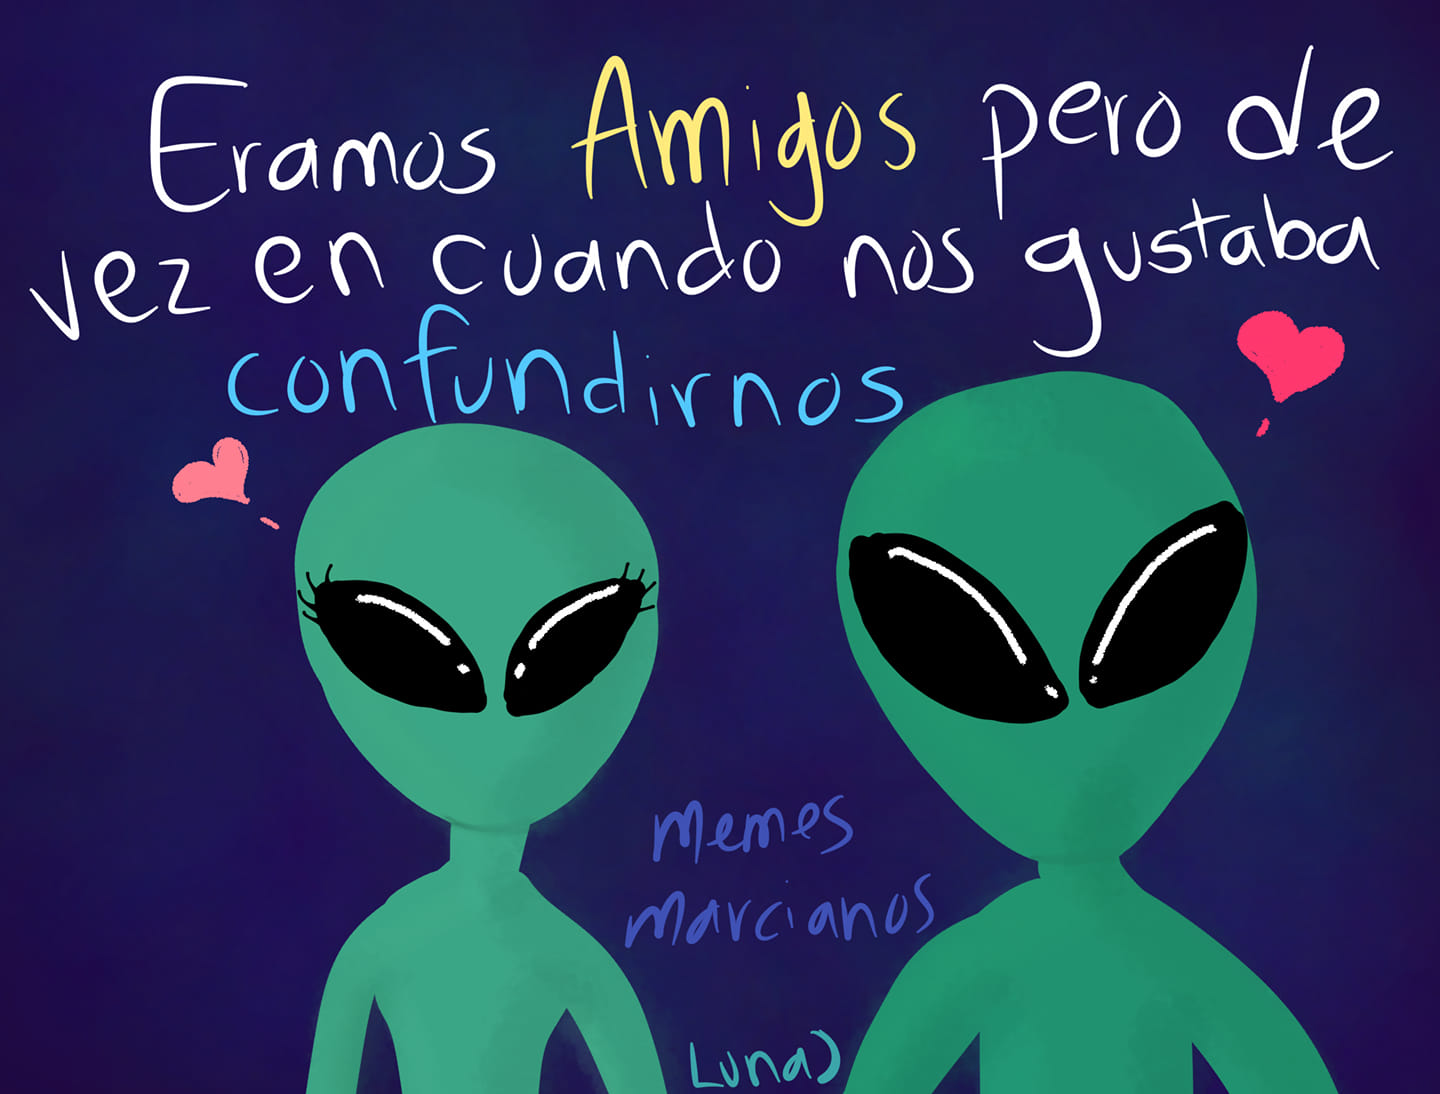 Eramos Amigos pero de
vez en cuando nos gustaba
confundirnos
memes
marcianos
Luna